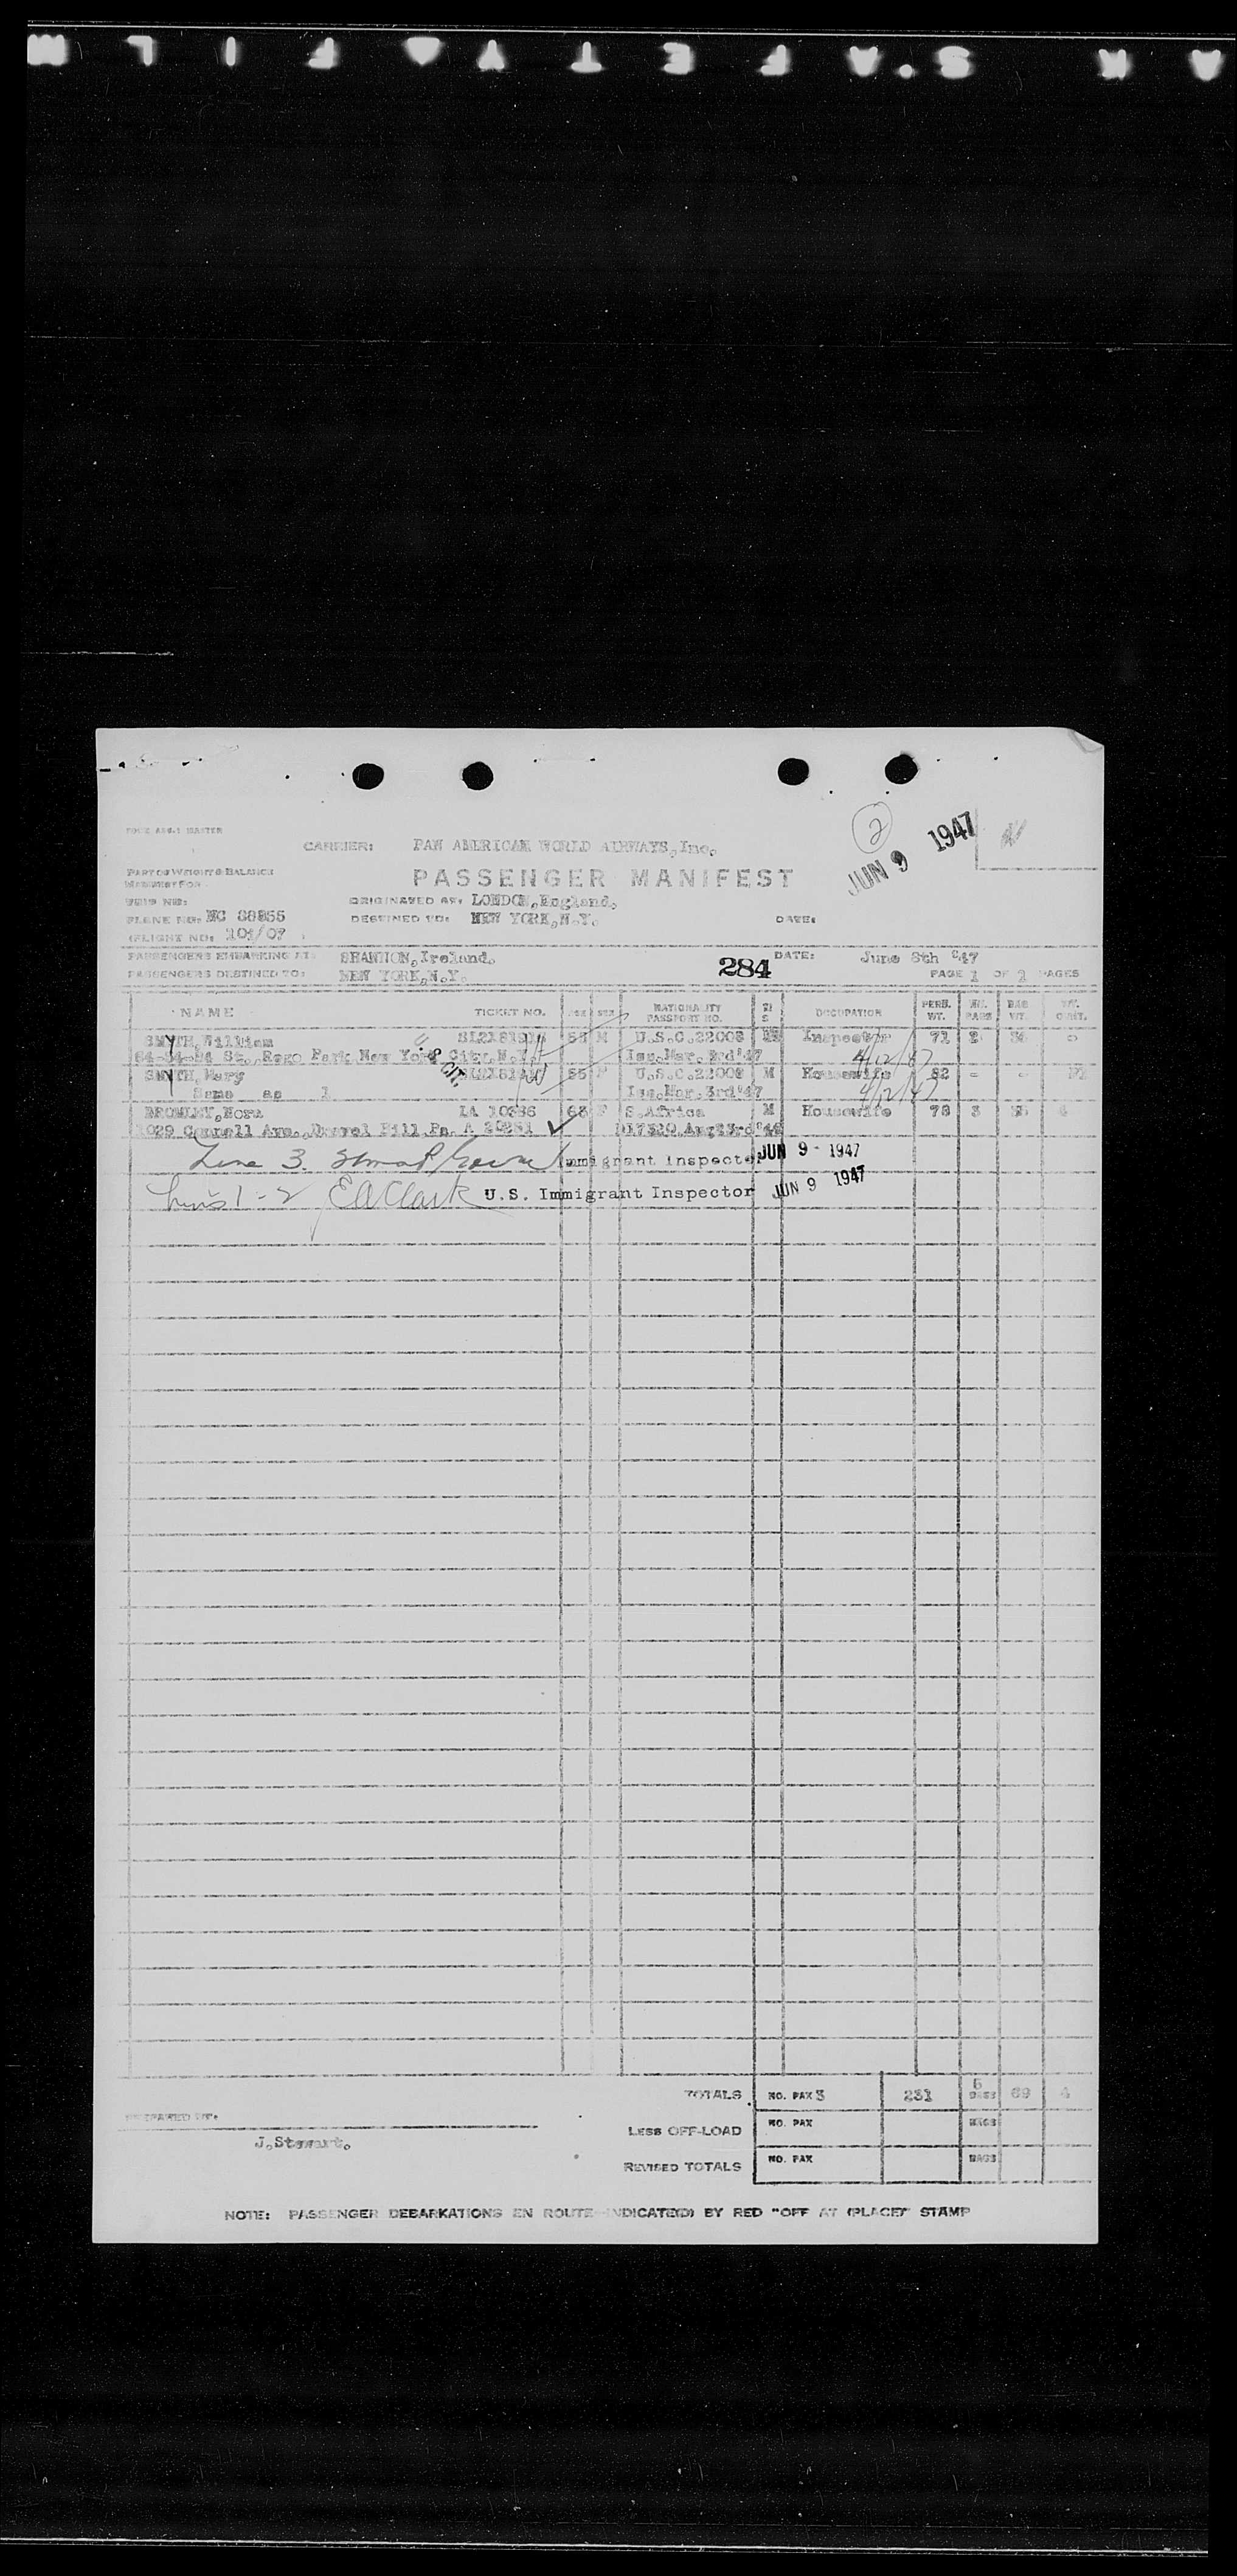 2
JUN 9 1947
CARRIER: PAN AMERICAN WORLD AIRWAYS, Inc.
PART OF WEIGHT & BALANCE
MANIFEST FOR
PASSENGER MANIFEST
TRIP NO:
ORIGINATED AT: LONDON, England.
PLANE NO: NC
DESTINED TO: NEW YORK, N.Y.
DATE:
FLIGHT NO: 101/07
PASSENGERS EMBARKING AT: SHANNON, Ireland.
284
DATE: June 8th '47
PASSENGERS DESTINED TO: NEW YORK, N.Y.
PAGE 1 OF 1 PAGES
NAME TICKET NO. AGE SEX NATIONALITY PASSPORT NO. OCCUPATION PERS. WT. NO. PAGS BAG WT.
SMYTH, William M U.S.C. 22008 Inspector 71 2
St., Rego Park, New York City, N.Y. Iss. Mar. 3rd '47 4/12/47
U.S. CIT.
SMYTH, Mary 55 F U.S.C. 22009 M Housewife 82 - -
Same as 1 Iss. Mar. 3rd '47 4/12/47
BROMLEY, Nora LA 10386 63 F S. Africa M Housewife 78 3
1029 Ave., Hill, Pa.
Line 3. Immigrant Inspector JUN 9 - 1947
Lines 1 - 2 E A Clark U.S. Immigrant Inspector JUN 9 1947
TOTALS NO. PAX 3 231 5 BAGS 69 4
PREPARED BY:
J. Stewart.
LESS OFF-LOAD NO. PAX BAGS
REVISED TOTALS NO. PAX BAGS
NOTE: PASSENGER DEBARKATIONS EN ROUTE INDICATED BY RED "OFF AT (PLACE)" STAMP